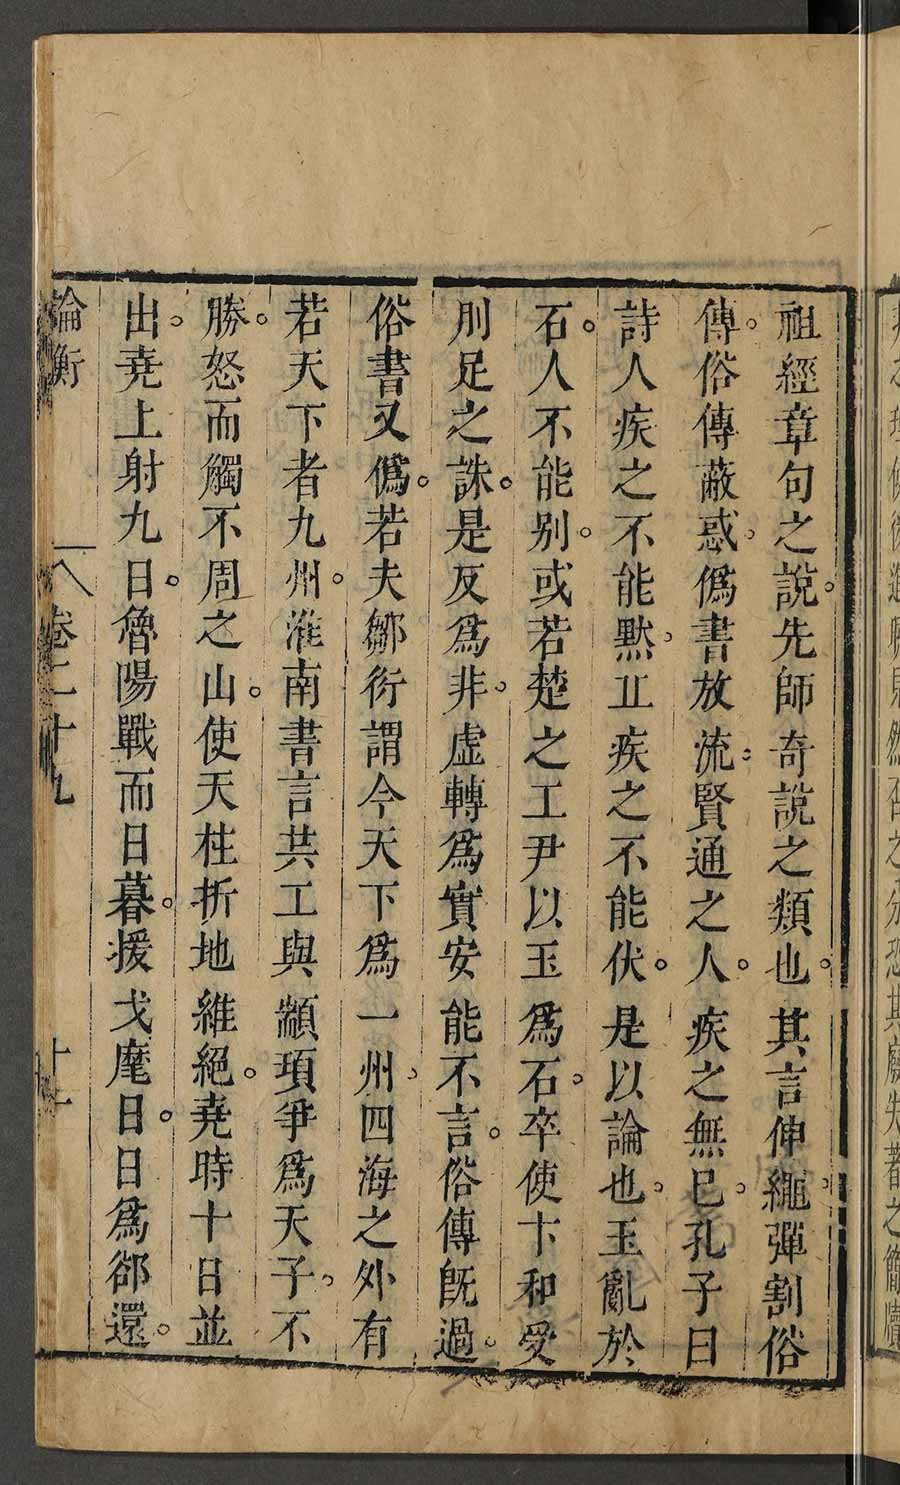 祖經章句之說。先師奇說之類也。其言伸繩。彈割俗
傳。俗傳蔽惑。僞書放流。賢通之人。疾之無已。孔子曰
詩人疾之不能默。丘疾之不能伏。是以論也。玉亂於
石。人不能别。或若楚之工尹以玉爲石。卒使卞和受
刖足之誅。是反爲非。虛轉爲實安能不言。俗傳旣過。
俗書又僞。若夫鄒衍謂今天下爲一州。四海之外有
若天下者九州。淮南書言共工與顓頊爭爲天子。不
勝。怒而觸不周之山。使天柱折地維絕。堯時十日並
出。堯上射九日。魯陽戰而日暮。援戈麾日。日爲郤還。
論衡 卷二十九 十一